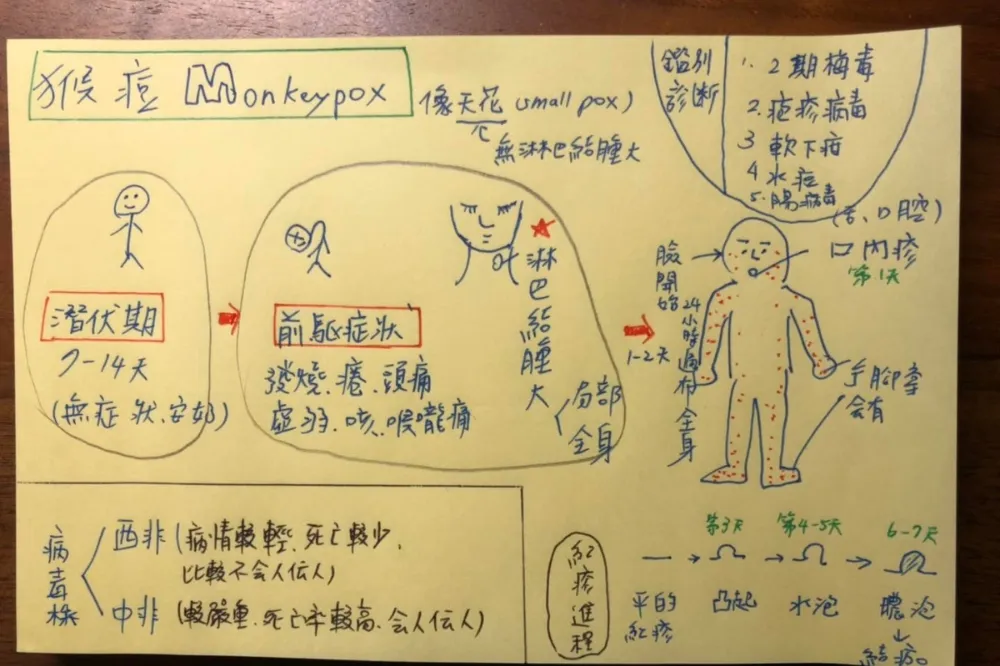 猴痘 Monkeypox
像天花 (small pox)
無淋巴結腫大
鑑別
診斷
1. 2期梅毒
2. 疱疹病毒
3 軟下疳
4 水痘
5. 腸病毒
潛伏期
7-14天
(無症狀、安好)
前驅症狀
發燒、倦、頭痛
虛弱、咳、喉嚨痛
★淋巴結腫大
局部
全身
1-2天
臉開始
24小時遍布全身
(舌、口腔)
口內疹
第1天
手腳掌
会有
病毒株
西非 (病情較輕、死亡較少,
比較不会人传人)
中非 (較嚴重、死亡率較高、会人传人)
紅疹進程
第3天
第4-5天
6-7天
平的
紅疹
凸起
水泡
膿泡
結痂。